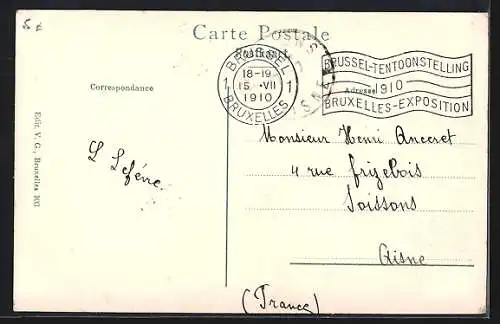 Carte Postale
BRUSSEL
18-19
15 · VII
1 1
1910
BRUXELLES
BRUSSEL-TENTOONSTELLING
1910
BRUXELLES-EXPOSITION
Correspondance
Adresse
Edit. V. G., Bruxelles
L Lefévre.
Monsieur Henri Anceret
4 rue Frizebois
Soissons
Aisne
(France)